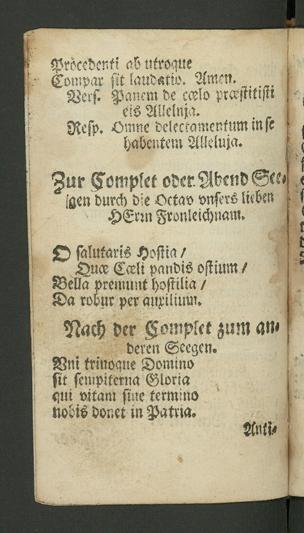 Pròcedenti ab utroque
Compar sit laudatio. Amen.
Vers. Panem de cœlo præstitisti
eis Alleluja.
Resp. Omne delectamentum in se
habentem Alleluja.
Zur Complet oder Abend See-
gen durch die Octav vnsers lieben
HErrn Fronleichnam.
O salutaris Hostia /
Quæ Cœli pandis ostium /
Bella premunt hostilia /
Da robur fer auxilium.
Nach der Complet zum an-
deren Seegen.
Vni trinoque Domino
sit sempiterna Gloria
qui vitam sine termino
nobis donet in Patria.
Anti-